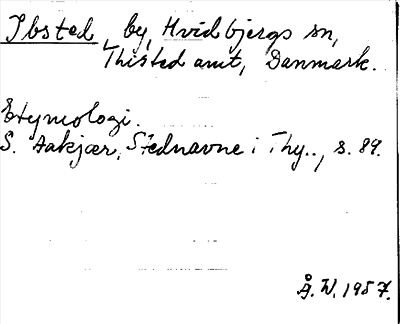 Ibsted, by, Hvidbjergs sn,
Thisted amt, Danmark.
Etymologi.
S. Aakjær, Stednavne i Thy.., s. 89.
Å. W. 1957.